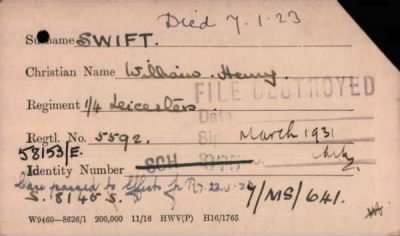 Died 7.1.23
Surname SWIFT.
Christian Name William Henry.
Regiment 1/4 Leicesters
FILE DESTROYED
Data
Regtl. No. 5592. March 1931
58153/E.
Identity Number SCH
Case passed to Effects
S. 8145 S. 7/MS/641.
W9460—8626/1 200,000 11/16 HWV(P) H16/1765